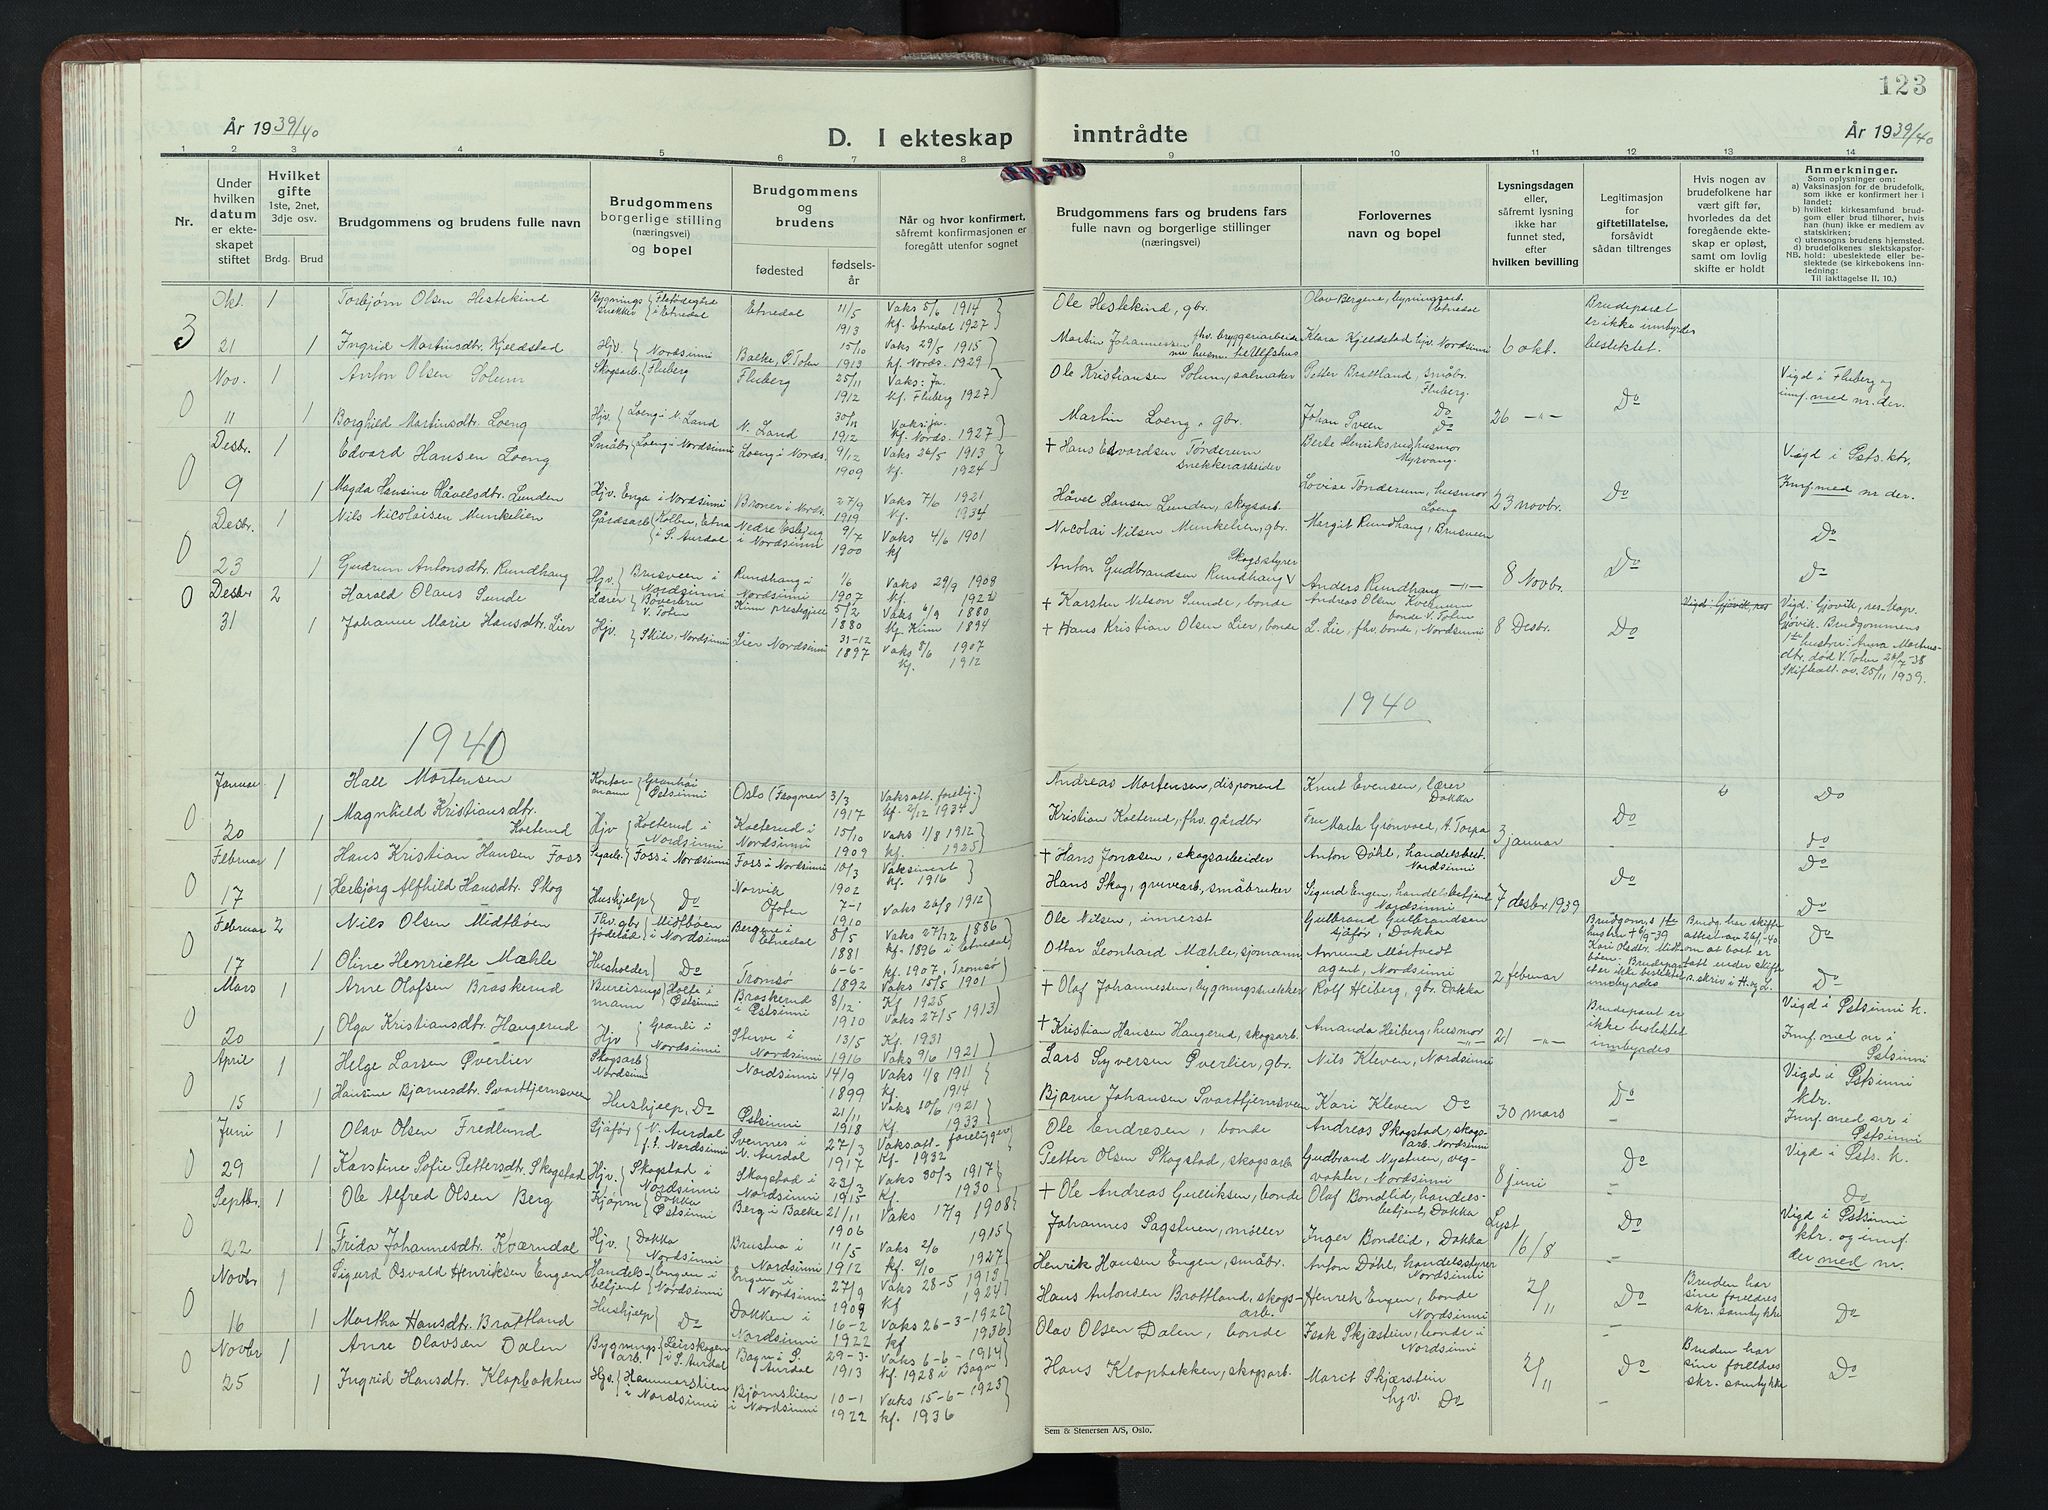 123
År 1939/40
D. I ekteskap inntrådte
År 1939/40
1 2 3 4 5 6 7 8 9 10 11 12 13 14
Nr.
Under hvilken datum er ekteskapet stiftet
Hvilket gifte 1ste, 2net, 3dje osv.
Brdg. Brud
Brudgommens og brudens fulle navn
Brudgommens borgerlige stilling (næringsvei) og bopel
Brudgommens og brudens
fødested
fødselsår
Når og hvor konfirmert, såfremt konfirmasjonen er foregått utenfor sognet
Brudgommens fars og brudens fars fulle navn og borgerlige stillinger (næringsvei)
Forlovernes navn og bopel
Lysningsdagen eller, såfremt lysning ikke har funnet sted, efter hvilken bevilling
Legitimasjon for giftetillatelse, forsåvidt sådan tiltrenges
Hvis nogen av brudefolkene har vært gift før, hvorledes da det foregående ekteskap er opløst, samt om lovlig skifte er holdt
Anmerkninger.
Som oplysninger om:
a) Vaksinasjon for de brudefolk, som ikke er konfirmert her i landet;
b) hvilket kirkesamfund brudgom eller brud tilhører, hvis han (hun) ikke er medlem av statskirken;
c) utensogns brudens hjemsted.
d) brudefolkenes slektskapsforhold: ubeslektede eller beslektede (se kirkebokens innledning:
NB.
Til iakttagelse II. 10.)
3 Okt. 1 Torbjørn Olsen Hestekind Bygningssnekker Etnedal 11/5 1913 Vaks 5/6 1914 kf. Etnedal 1927 Ole Hestekind, gbr. Olav Bergene, bygningsarb. Etnedal Brudeparet er ikke innbyrdes beslektet.
21 1 Ingrid Martinsdtr. Kjeldstad Hjv. Nordsinni Balke, Ø. Toten 15/10 1913 Vaks 29/5 1915 kf. Nords. 1929 Martin Johannessen fhv. bryggeriarbeider Klara Kjeldstad hjv. Nordsinni 6 okt.
0 Nov. 1 Anton Olsen Solum Skogsarb. Fluberg Fluberg 25/11 1912 Vaks: Ja. Kf. Fluberg 1927 Ole Kristiansen Solum, salmaker Petter Brattland, småbr. Fluberg. Do Vigd i Fluberg og innf. med nr. der.
11 1 Borghild Martinsdtr. Loeng Hjv. Loeng i N. Land N. Land 1912 Vaks: ja. Kf. Nords. 1927 Martin Loeng, gbr. Johan Sveen Do 26 -"-
0 Desbr. 1 Edvard Hansen Loeng Småbr. Loeng i Nordsinni Loeng i Nords. 9/12 1909 Vaks 26/5 1913 Kf. 1924 + Hans Edvardsen Tønderum snekkerarbeider Berte Henriksrud husmor Myrvang. Vigd i Østs. ktr.
9 1 Magda Hansine Håvelsdtr. Lunden Hjv. Enga i Nordsinni Broner i Nords. 27/9 1919 Vaks 7/6 1921 Kf. 1934 Håvel Hansen Lunden, skogsarb. Lovise Tønderum, husmor Loeng 23 novbr. Do Innf. med nr der.
0 Desbr. 1 Nils Nicolaisen Munkelien Gårdsarb. Kolben, Etna i S. Aurdal Nedre Esbjug i Nordsinni 9/7 1900 Vaks 4/6 1901 kf Nicolai Nilsen Munkelien, gbr. Margit Rundhaug, Brusveen Do
23 1 Gudrun Antonsdtr. Rundhaug Hjv. Brusveen i Nordsinni Rundhaug i Nordsinni 1/6 1907 Vaks 29/9 1908 Kf. 1922 Anton Gudbrandsen Rundhaug Skogsstyrer Anders Rundhaug -"- 8 Novbr. Do Do
0 Desbr 2 Harald Olaus Sunde Lærer V. Toten Kinn prestegjeld 5/2 1880 Vaks 6/9 1880 Kf. Kinn 1894 + Karsten Nilson Sunde, bonde Andreas Olsen Kvernum bonde V. Toten Vigd: Gjøvik, res Vigd: Gjøvik, res. kap. Gjøvik. Brudgommens 1te hustru: Anna Marthusdtr. død V. Toten 26/7-38 Skifteatt. av 25/11 1939.
31 1 Johanne Marie Hansdtr. Lier Hjv. Skile, Nordsinni Lier Nordsinni 31-12 1897 Vaks 8/6 1907 kf. 1912 + Hans Kristian Olsen Lier, bonde L. Lie, fhv. bonde, Nordsinni 8 Desbr. Do
1940
1940
0 Januar 1 Hall Mortensen Kontormann Granhei Østsinni Oslo (Frogner 3/3 1917 Vaksatt. forelig. kf. 2/12 1934 Andreas Mortensen, disponent Knut Evensen, lærer Dokka Do
20 1 Magnhild Kristiansdtr. Koeterud Hjv Koeterud i Nordsinni Koeterud i Nordsinni 15/10 1909 Vaks 1/8 1912 kf. 1925 Kristian Koeterud, fhv. gårdbr Fru Marta Grønvold, A. Torpa 3 januar Do Do
0 Februar 1 Hans Kristian Hansen Foss Foss i Nordsinni Foss i Nordsinni 10/3 1902 Vaksinert kf. 1916 + Hans Jonasen, skogsarbeider Anton Døhl, handelsbest. Nordsinni Do
17 1 Herbjørg Alfhild Hansdtr. Skog Hushjelp Do Narvik Ofoten 7-1 1910 Vaks 26/8 1912 Hans Skog, gruvearb, småbruker Sigurd Engen, handelsbetjent Nordsinni 7 desbr. 1939 Do Do
0 Februar 2 Nils Olsen Midtbøen Fhv. gbr føderåd Midtbøen i Nordsinni Bergene i Etnedal 8/5 1881 Vaks 27/12 1886 kf. 1896 i Etnedal Ole Nilsen, innerst Gulbrand Gulbrandsen sjåfør, Dokka Brudgom.s 1te hustru + 6/9-39 Kari Olsdtr. Midtbøen. Brudeparet er ikke beslektet innbyrdes Brudg. har skifteattest av 26/1-40 om at boet er tatt under skifte Do
17 1 Oline Henriette Mæhle Husholder Do Tromsø 6-6- 1892 kf. 1907, Tromsø Vaks 15/5 1901 Ottar Leonhard Mæhle, sjømann Amund Mørtvedt agent, Nordsinni 2 februar Do
0 Mars 1 Arne Olafsen Braskerud Bureisingsmann Holte i Østsinni Braskerud i Østsinni 8/12 1910 Kf 1925 Vaks 27/5 1913 + Olaf Johannesen, bygningssnekker Rolf Heiberg, gbr. Dokka Brudeparet er ikke beslektet innbyrdes Vigd i Østsinni k.
20 1 Olga Kristiansdtr. Haugerud Hjv Granli i Nordsinni Nordsinni 13/5 1916 Kf. 1931 Vaks 9/6 1921 + Kristian Hansen Haugerud, skogsarb. Amanda Heiberg, husmor 21 -"- Innf. med nr i Østsinni
0 April 1 Helge Larsen Øverlier Skogsarb Nordsinni Nordsinni 14/9 1899 Vaks 1/8 1911 kf. 1914 Lars Syversen Øverlier, gbr. Nils Kleven, Nordsinni Vigd i Østsinni ktr.
15 1 Hansine Bjarnesdtr. Svarttjernsveen Hushjelp, Do Østsinni 21/11 1918 Vaks 10/6 1921 Kf. 1933 Bjarne Johansen Svarttjernsveen Kari Kleven Do 30 mars Do Innf. med nr i Østsinni
0 Juni 1 Olav Olsen Fredlund Sjåfør V. Aurdal f. t. Nordsinni Svennes i N. Aurdal 27/3 1917 Vaksatt. foreligger Kf. 1932 Ole Endresen, bonde Andreas Skogstad, skogsarb. Nordsinni Vigd i Østs. k.
29 1 Karstine Sofie Pettersdtr. Skogstad Hjv. Skogstad i Nordsinni Skogstad i Nordsinni 23/3 1915 Vaks 30/3 1917 Kf. 1930 Petter Olsen Skogstad, skogsarb Gudbrand Nystuen, vegvokter, Nordsinni 8 juni Do
0 Septbr. 1 Ole Alfred Olsen Berg Kjøpm Dokka Østsinni Berg i Balke 21/11 1906 Vaks 17/9 1908 + Ole Andreas Gulliksen, bonde Olaf Bondlid, handelsbetjent, Dokka Do
22 1 Frida Johannesdtr. Kværndal Hjv. Dokka Nordsinni Brustua i Nordsinni 11/5 1912 Vaks 2/6 1915 kf. 2/10 1927 Johannes Sagstuen, møller Inger Bondlid, Dokka Lyst 16/8 Do Vigd i Østsinni ktr. og innf. der med nr.
0 Novbr 1 Sigurd Osvald Henriksen Engen Handelsbetjent Engen i Nordsinni Engen i Nordsinni 27/9 1909 Vaks 28-5 1912 Kf 1924 Henrik Hansen Engen, småbr. Anton Døhl, handelsstyrer Nordsinni Bruden har sine foreldres skr. samtykke
16 1 Martha Hansdtr. Brattland Hushjelp Do Dokken i Nordsinni 16-2 1922 Vaks 26-3-1922 kf 1936 Hans Antonsen Brattland, skogsarb. Henrik Engen, bonde Nordsinni 2/11 Do Do
0 Novbr 1 Arne Olavsen Dalen Bygningsarb. Leirskogen i S. Aurdal Bagn i S. Aurdal 29-3- 1913 Vaks 6-6-1914 Kf. 1928 i Bagn Olav Olsen Dalen, bonde Isak Skjæstein, bonde i Nordsinni Bruden har sine foreldres skr. samtykke
25 1 Ingrid Hansdtr. Klopbakken Hjv. Hammerstien i Nordsinni Bjørnslien i Nordsinni 10-1 1922 Vaks 15-6-1923 kf. 1936 Hans Klopbakken, skogsarb. Marit Skjæstein hjv. Do 2/11 Do Do
Sem & Stenersen A/S, Oslo.